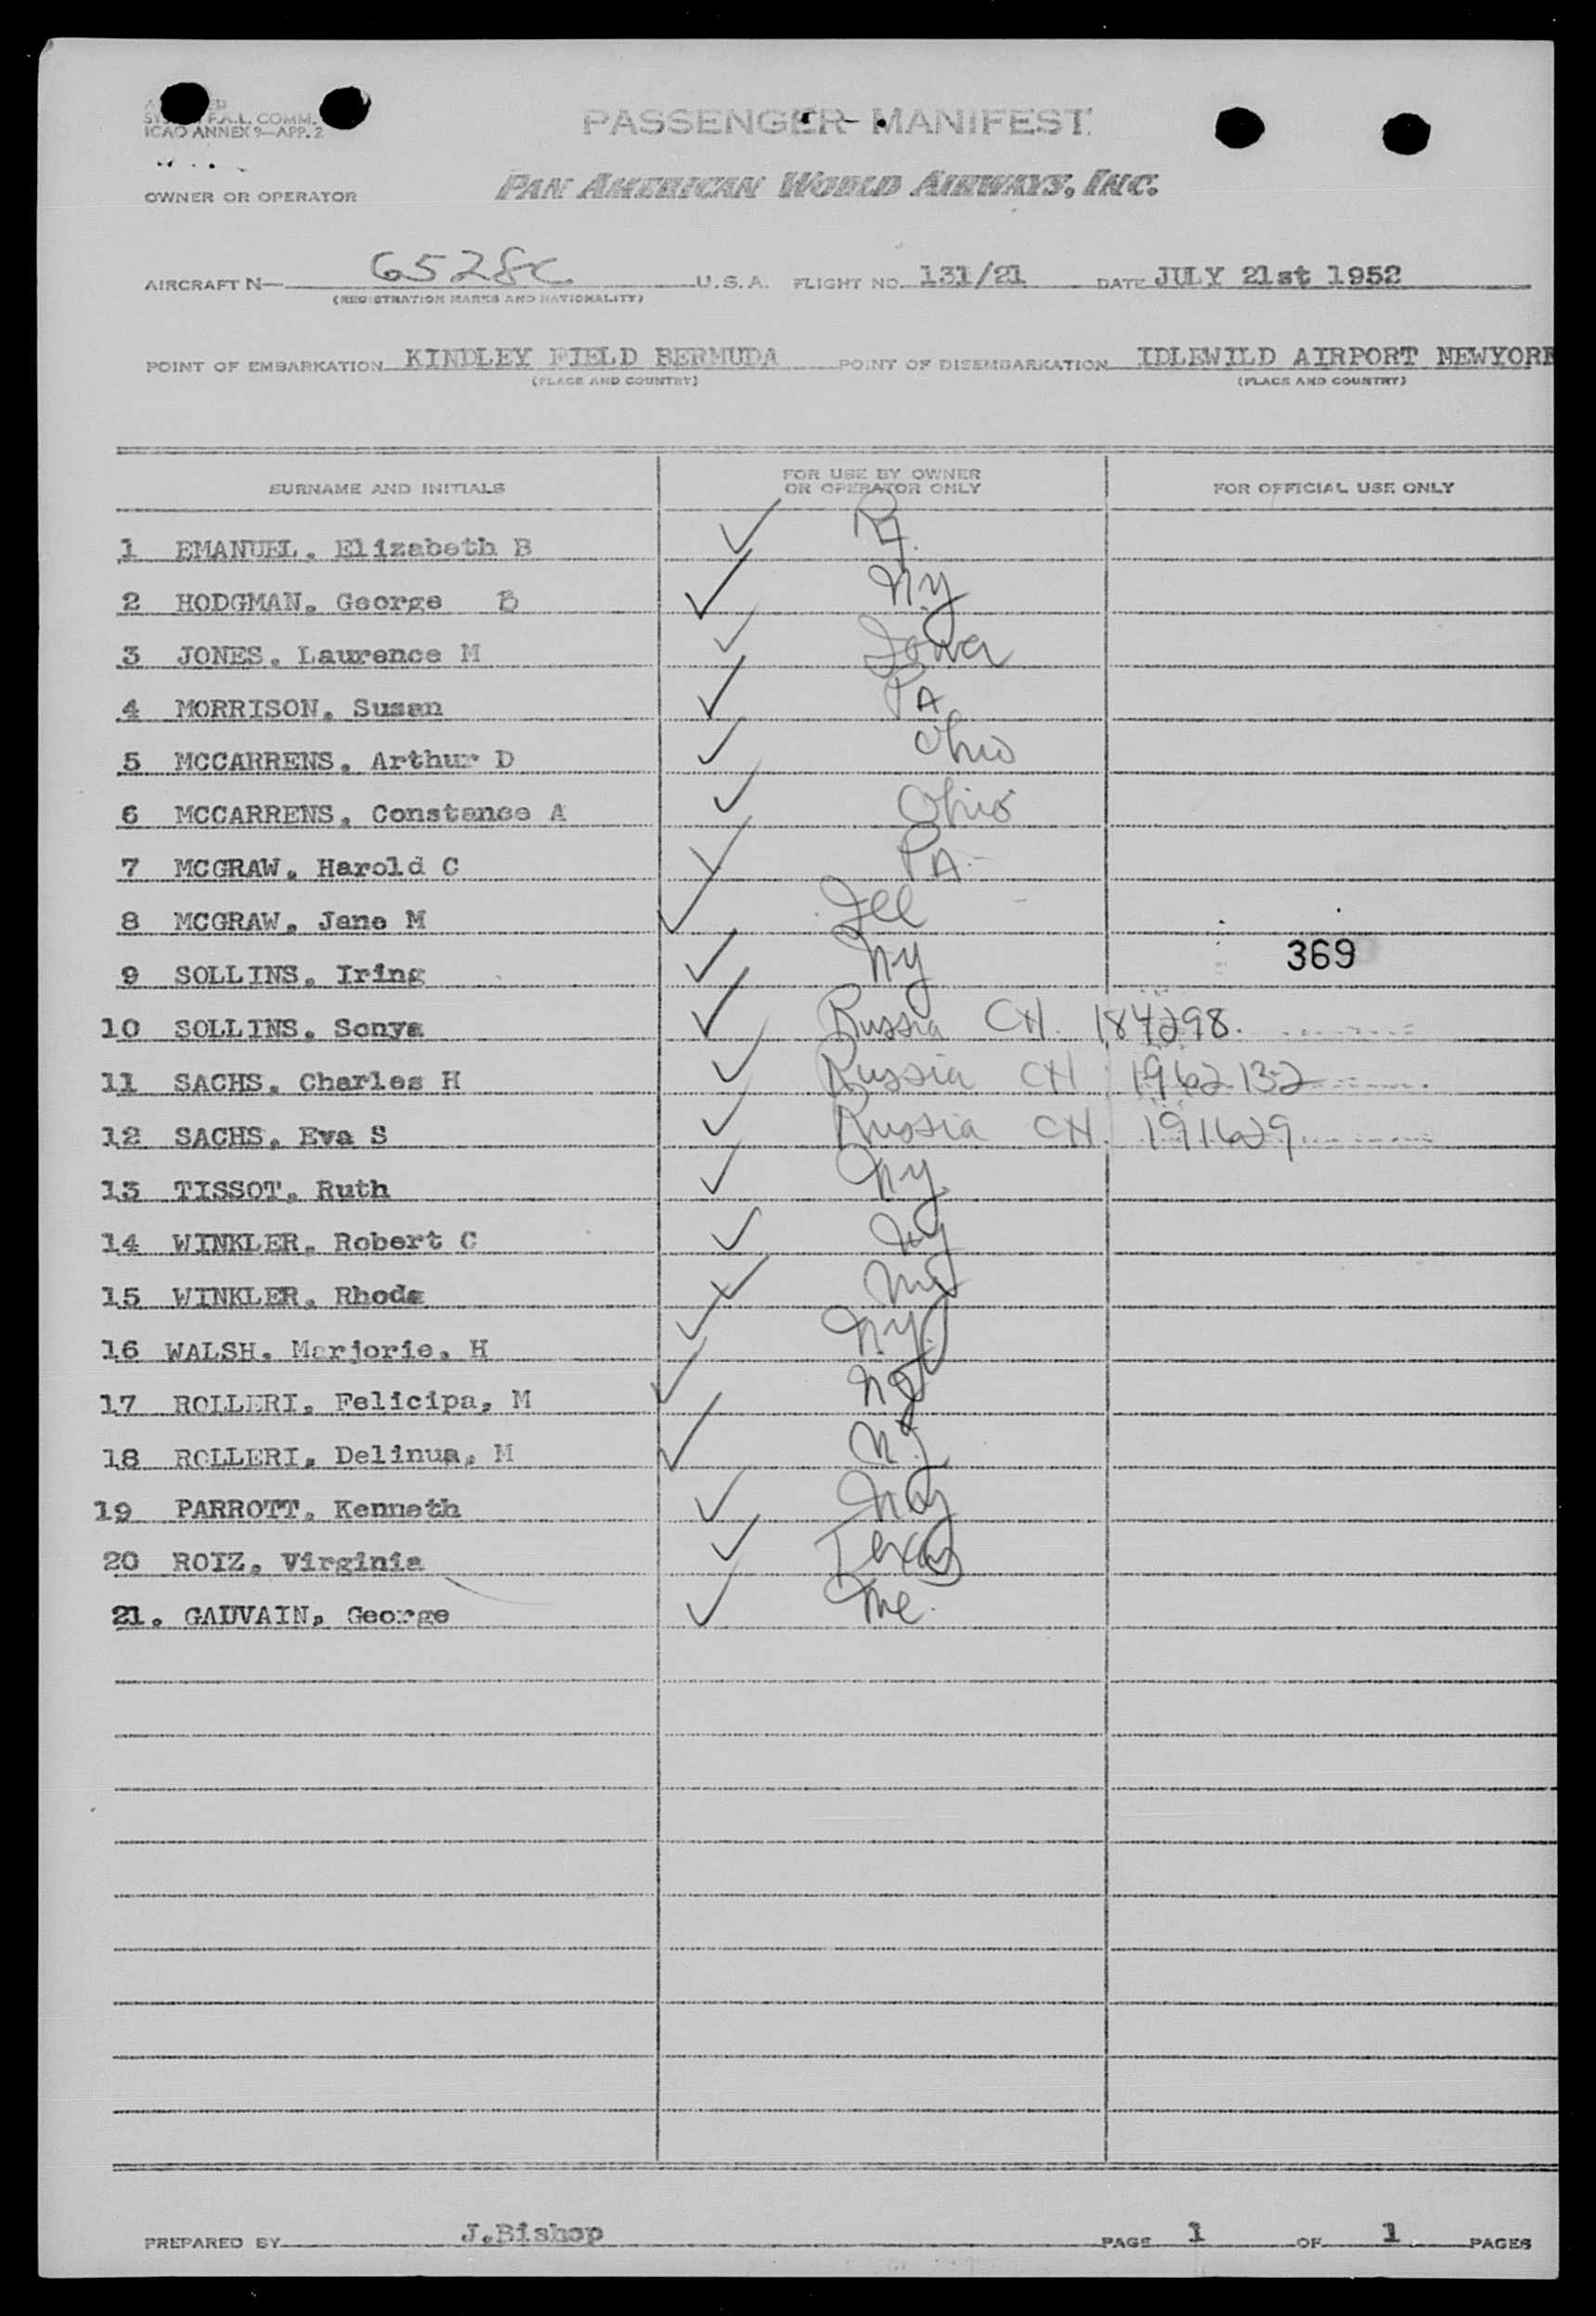 F.A.L. COMM.
ICAO ANNEX 9—APP. 2
PASSENGER MANIFEST
OWNER OR OPERATOR PAN AMERICAN WORLD AIRWAYS, INC.
AIRCRAFT N— 6528C U.S.A. FLIGHT NO. 131/21 DATE JULY 21st 1952
(REGISTRATION MARKS AND NATIONALITY)
POINT OF EMBARKATION KINDLEY FIELD BERMUDA POINT OF DISEMBARKATION IDLEWILD AIRPORT NEWYORK
(PLACE AND COUNTRY) (PLACE AND COUNTRY)
SURNAME AND INITIALS FOR USE BY OWNER OR OPERATOR ONLY FOR OFFICIAL USE ONLY
1 EMANUEL. Elizabeth B ✓
2 HODGMAN. George B ✓ Ny
3 JONES. Laurence M ✓ Iowa
4 MORRISON. Susan ✓ PA
5 MCCARRENS. Arthur D ✓ Ohio
6 MCCARRENS. Constance A ✓ Ohio
7 MCGRAW. Harold C ✓ PA.
8 MCGRAW. Jane M ✓ Ill
9 SOLLINS. Iring ✓ Ny 369
10 SOLLINS. Sonya ✓ Russia CH. 184298.
11 SACHS. Charles H ✓ Russia CH 1962132
12 SACHS. Eva S ✓ Russia CH. 191629
13 TISSOT. Ruth ✓ Ny.
14 WINKLER. Robert C ✓ Ny
15 WINKLER. Rhoda ✓
16 WALSH. Marjorie. H ✓ Ny.
17 ROLLERI. Felicipa, M ✓ NJ
18 ROLLERI. Delinua. M ✓ NJ
19 PARROTT. Kenneth ✓ Ny
20 ROIZ. Virginia ✓ Texas
21. GAUVAIN, George ✓ Me.
PREPARED BY J.Bishop PAGE 1 OF 1 PAGES